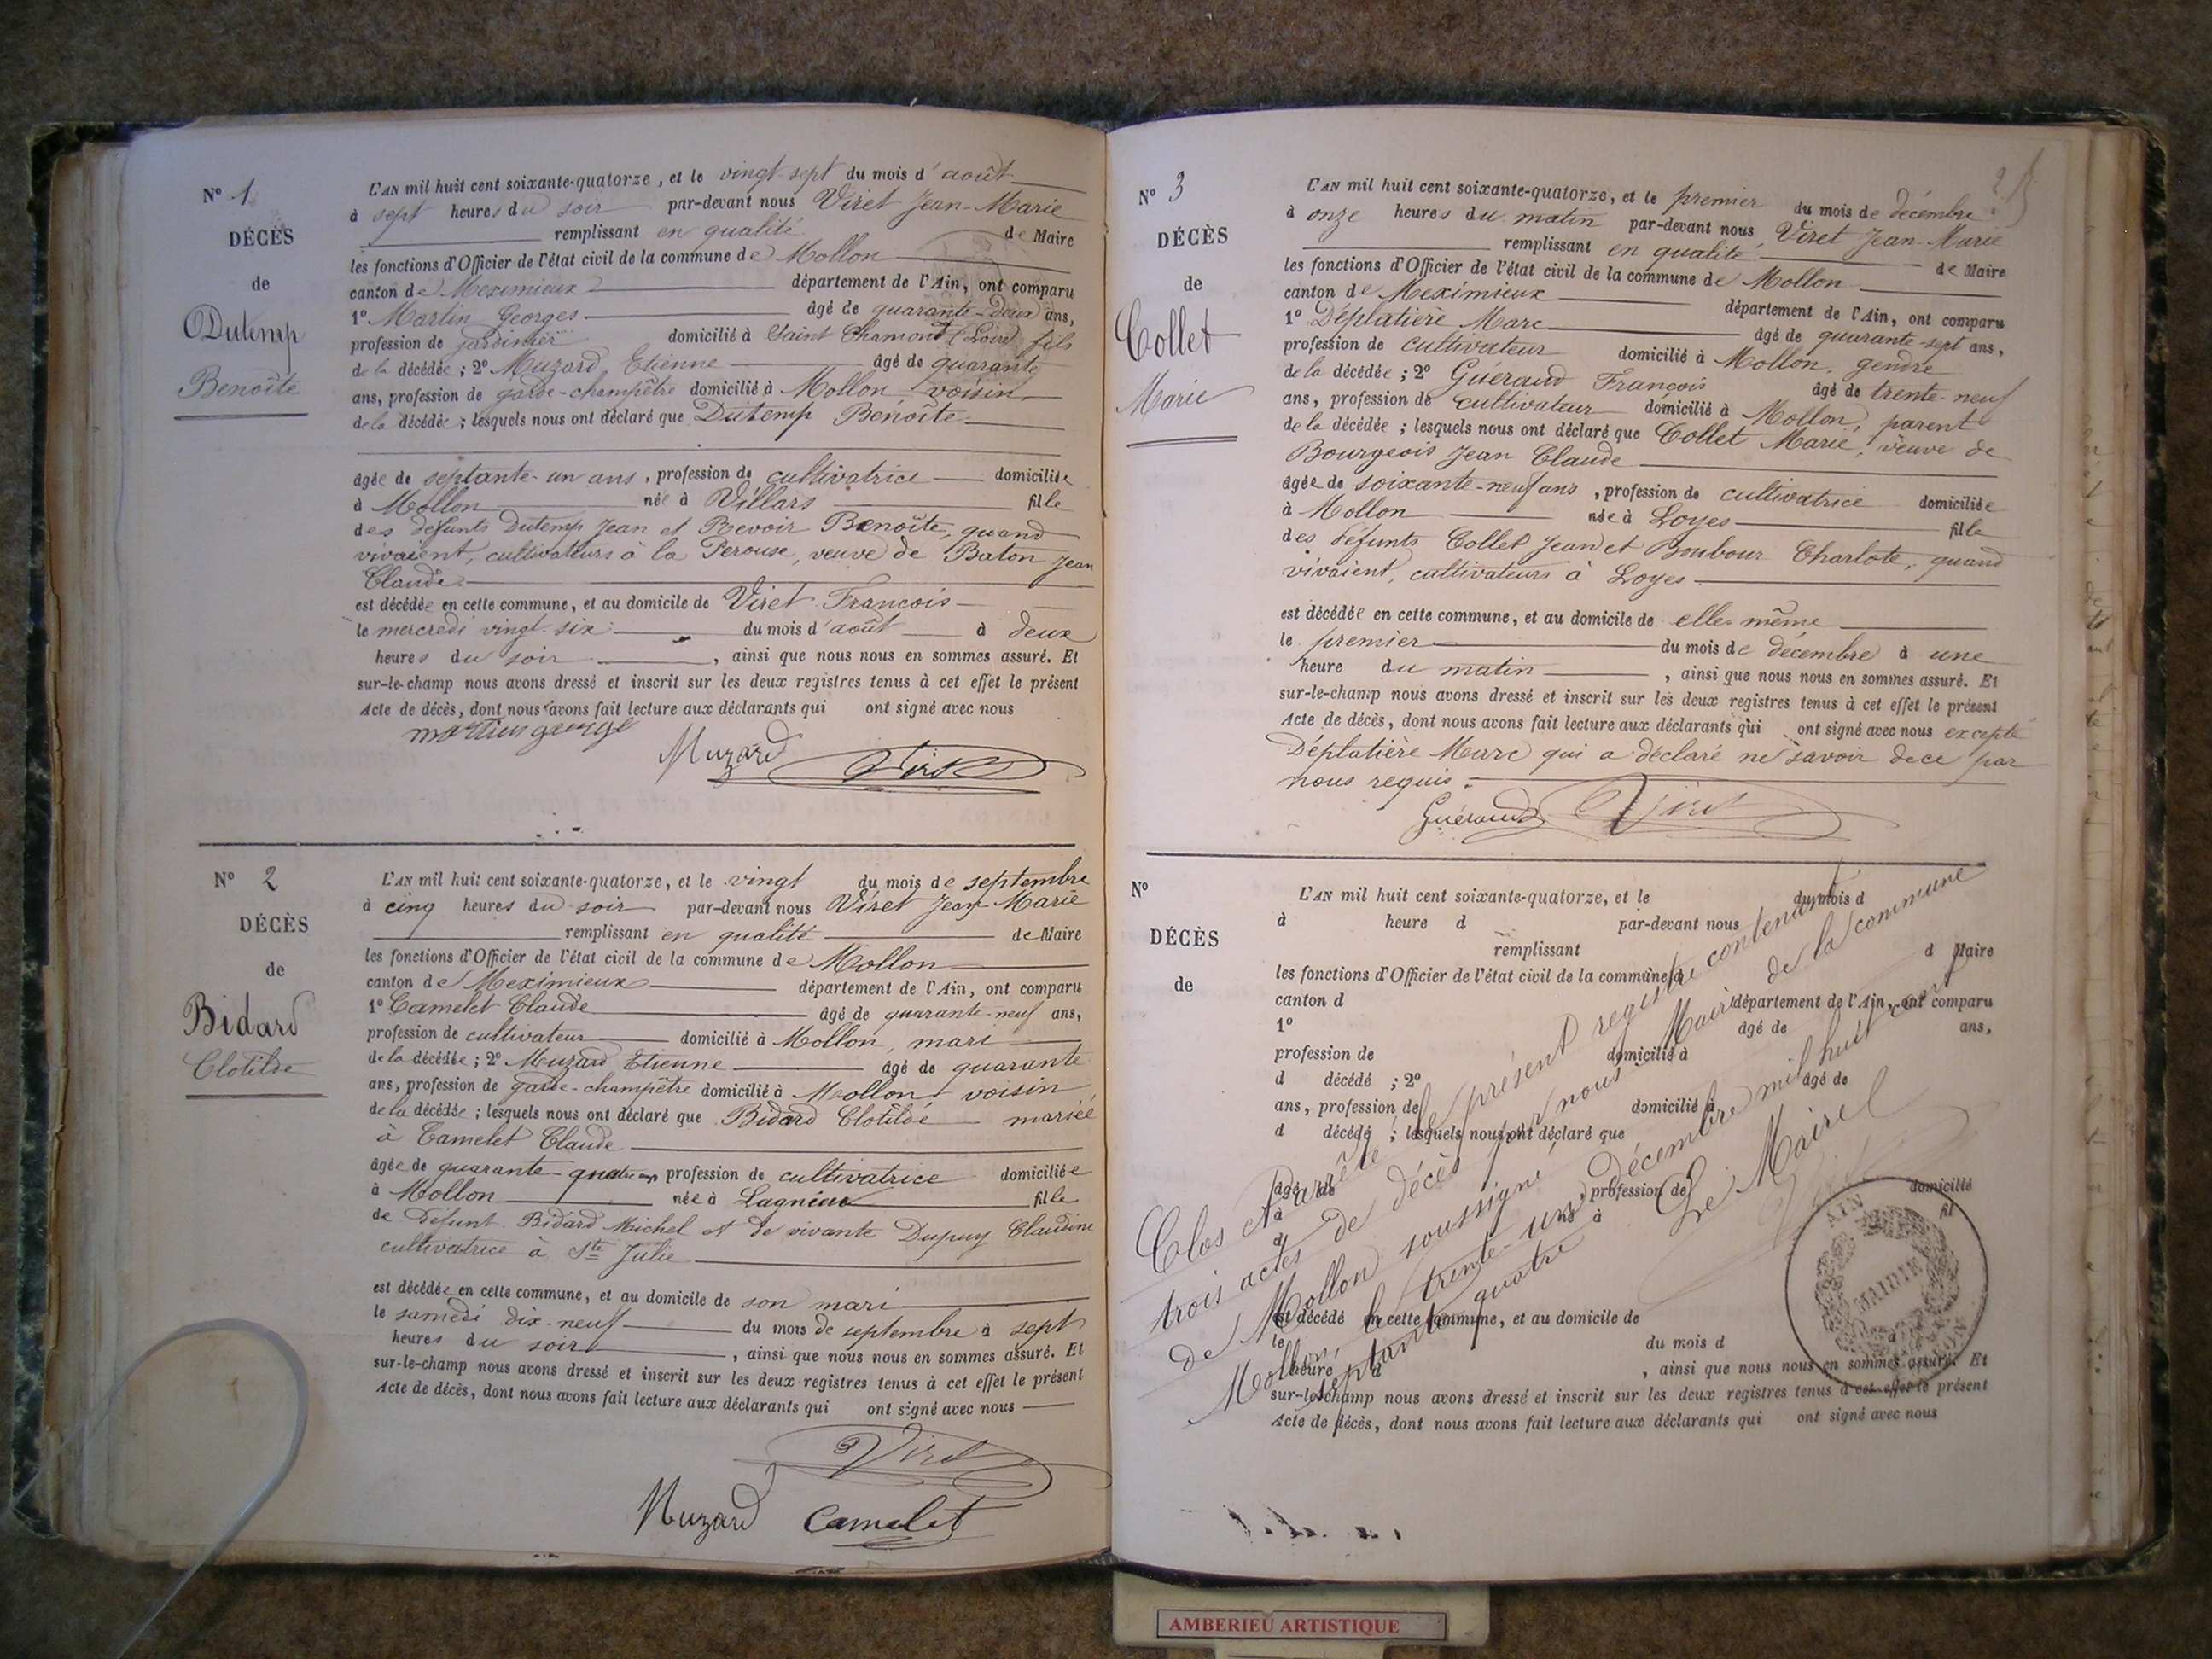 N° 1
DÉCÈS
de
Dutemp
Benoîte
L'AN mil huit cent soixante-quatorze, et le vingt-sept du mois d'août
à sept heures du soir par-devant nous Viret Jean-Marie
remplissant en qualité de Maire
les fonctions d'Officier de l'état civil de la commune de Mollon
canton de Meximieux département de l'Ain, ont comparu
1° Martin Georges âgé de quarante-deux ans,
profession de jardinier domicilié à Saint Chamond (Loire) fils
de la décédée ; 2° Muzard Etienne âgé de quarante
ans, profession de garde-champêtre domicilié à Mollon voisin
de la décédée ; lesquels nous ont déclaré que Dutemp Benoîte
âgée de septante-un ans, profession de cultivatrice domiciliée
à Mollon née à Villars fille
des défunts Dutemp Jean et Bevoir Benoîte, quand
vivaient, cultivateurs à la Perouse, veuve de Baton Jean
Claude
est décédée en cette commune, et au domicile de Viret François
le mercredi vingt-six du mois d'août à deux
heures du soir, ainsi que nous nous en sommes assuré. Et
sur-le-champ nous avons dressé et inscrit sur les deux registres tenus à cet effet le présent
Acte de décès, dont nous avons fait lecture aux déclarants qui ont signé avec nous
martin george
Muzard Viret
N° 2
DÉCÈS
de
Bidard
Clotilde
L'AN mil huit cent soixante-quatorze, et le vingt du mois de septembre
à cinq heures du soir par-devant nous Viret Jean-Marie
remplissant en qualité de Maire
les fonctions d'Officier de l'état civil de la commune de Mollon
canton de Meximieux département de l'Ain, ont comparu
1° Camelet Claude âgé de quarante-neuf ans,
profession de cultivateur domicilié à Mollon, mari
de la décédée ; 2° Muzard Etienne âgé de quarante
ans, profession de garde-champêtre domicilié à Mollon voisin
de la décédée ; lesquels nous ont déclaré que Bidard Clotilde mariée
à Camelet Claude
âgée de quarante-quatre ans profession de cultivatrice domiciliée
à Mollon née à Lagnieu fille
de défunt Bidard Michel et de vivante Dupuy Claudine
cultivatrice à Ste Julie
est décédée en cette commune, et au domicile de son mari
le samedi dix-neuf du mois de septembre à sept
heures du soir, ainsi que nous nous en sommes assuré. Et
sur-le-champ nous avons dressé et inscrit sur les deux registres tenus à cet effet le présent
Acte de décès, dont nous avons fait lecture aux déclarants qui ont signé avec nous
Viret
Muzard Camelet
N° 3
DÉCÈS
de
Collet
Marie
L'AN mil huit cent soixante-quatorze, et le premier du mois de décembre
à onze heures du matin par-devant nous Viret Jean-Marie
remplissant en qualité de Maire
les fonctions d'Officier de l'état civil de la commune de Mollon
canton de Meximieux département de l'Ain, ont comparu
1° Déplatière Marc âgé de quarante-sept ans,
profession de cultivateur domicilié à Mollon, gendre
de la décédée ; 2° Guéraud François âgé de trente-neuf
ans, profession de cultivateur domicilié à Mollon, parent
de la décédée ; lesquels nous ont déclaré que Collet Marie, veuve de
Bourgeois Jean Claude
âgée de soixante-neuf ans, profession de cultivatrice domiciliée
à Mollon née à Loyes fille
des défunts Collet Jean et Boubour Charlote, quand
vivaient, cultivateurs à Loyes
est décédée en cette commune, et au domicile de elle-même
le premier du mois de décembre à une
heure du matin, ainsi que nous nous en sommes assuré. Et
sur-le-champ nous avons dressé et inscrit sur les deux registres tenus à cet effet le présent
Acte de décès, dont nous avons fait lecture aux déclarants qui ont signé avec nous excepté
Déplatière Marc qui a déclaré ne savoir de ce par
nous requis.
Guéraud Viret
N°
DÉCÈS
de
L'AN mil huit cent soixante-quatorze, et le du mois d
à heure d par-devant nous
remplissant d Maire
les fonctions d'Officier de l'état civil de la commune d
canton d département de l'Ain, ont comparu
1° âgé de ans,
profession de domicilié à
d décédé ; 2° âgé de
ans, profession de domicilié à
d décédé ; lesquels nous ont déclaré que
âgé de profession de domicilié
à né à fil
d
est décédé en cette commune, et au domicile de
le du mois d
heure d, ainsi que nous nous en sommes assuré. Et
sur-le-champ nous avons dressé et inscrit sur les deux registres tenus à cet effet le présent
Acte de décès, dont nous avons fait lecture aux déclarants qui ont signé avec nous
Clos et arrêté le présent registre contenant
trois actes de décès par nous Maire de la commune
de Mollon soussigné
Mollon, le trente-un décembre mil huit cent
septante quatre
Le Maire
MAIRIE
AIN
AMBERIEU ARTISTIQUE